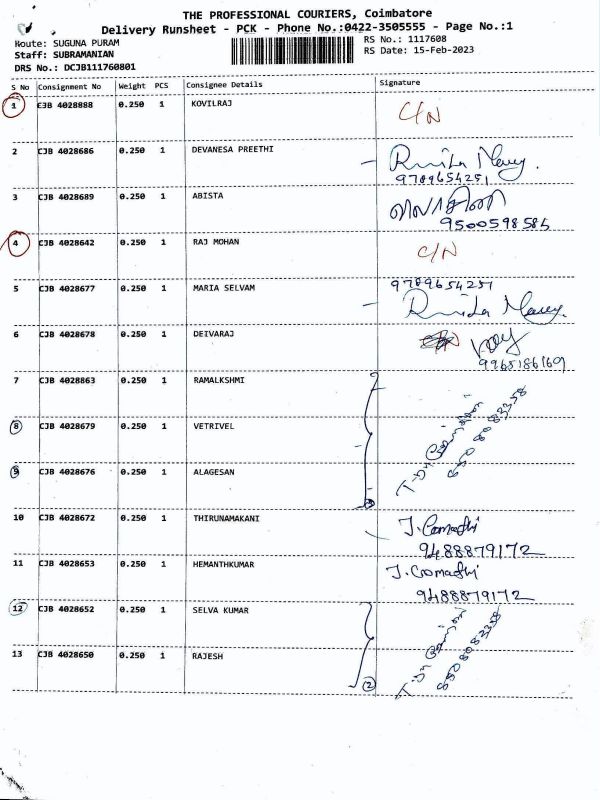 THE PROFESSIONAL COURIERS, Coimbatore
Delivery Runsheet - PCK - Phone No.:0422-3505555 - Page No.:1
Route: SUGUNA PURAM
RS No.: 1117608
Staff: SUBRAMANIAN
RS Date: 15-Feb-2023
DRS No.: DCJB111760801
S No Consignment No Weight PCS Consignee Details Signature
1 CJB 4028888 0.250 1 KOVILRAJ C/N
2 CJB 4028686 0.250 1 DEVANESA PREETHI
9789654251
3 CJB 4028689 0.250 1 ABISTA
9500598584
4 CJB 4028642 0.250 1 RAJ MOHAN C/N
5 CJB 4028677 0.250 1 MARIA SELVAM 9789654251
6 CJB 4028678 0.250 1 DEIVARAJ
9965186169
7 CJB 4028863 0.250 1 RAMALKSHMI
8 CJB 4028679 0.250 1 VETRIVEL
9 CJB 4028676 0.250 1 ALAGESAN
10 CJB 4028672 0.250 1 THIRUNAMAKANI J. Gomathi
9488879172
11 CJB 4028653 0.250 1 HEMANTHKUMAR J. Gomathi
9488879172
12 CJB 4028652 0.250 1 SELVA KUMAR
13 CJB 4028650 0.250 1 RAJESH 2